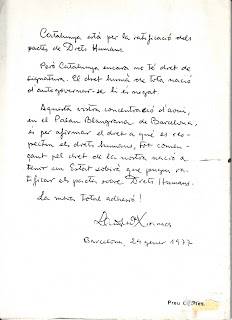 Catalunya està per la ratificació dels
pactes de Drets Humans
Però Catalunya encara no té dret de
signatura. El dret humà de tota nació
d'autogovernar-se li és negat.
Aquesta vostra concentració d'avui,
en el Palau Blaugrana de Barcelona,
és per afirmar el dret a què es res-
pectin els drets humans, tot comen-
çant pel dret de la nostra nació a
tenir un Estat sobirà que pugui ra-
tificar els pactes sobre Drets Humans.
La meva total adhesió!
Lluís Mª Xirinacs
Barcelona, 29 gener 1977
Preu